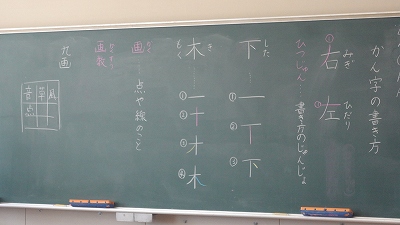 かん字の書き方
みぎ
右
ひだり
左
ひつじゅん…書き方のじゅんじょ
した
下
① 一
② 丅
③ 下
き
木
もく
① 一
② 十
③ 才
④ 木
かく
画…点や線のこと
かくすう
画数
九画